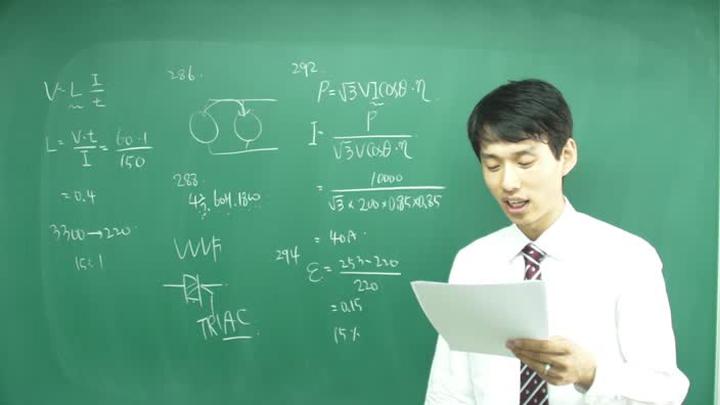 V= L I/t
L = V·t/I = 60·1/150
= 0.4
3300→220
15:1
286.
288.
VVVF
TRIAC
292.
P=√3VIcosθ·η
I = P/√3Vcosθ·η
= 10000/√3×200×0.85×0.85
= 40A.
294
ε = 253-220/220
= 0.15
15%